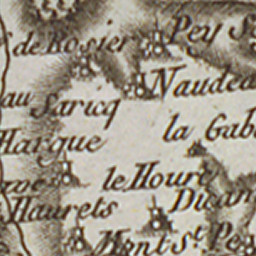 de Rosier
Pey S
Naudea
au Saricq
la Gab
Hargue
le Houre
Haurets
Mont St. Pe